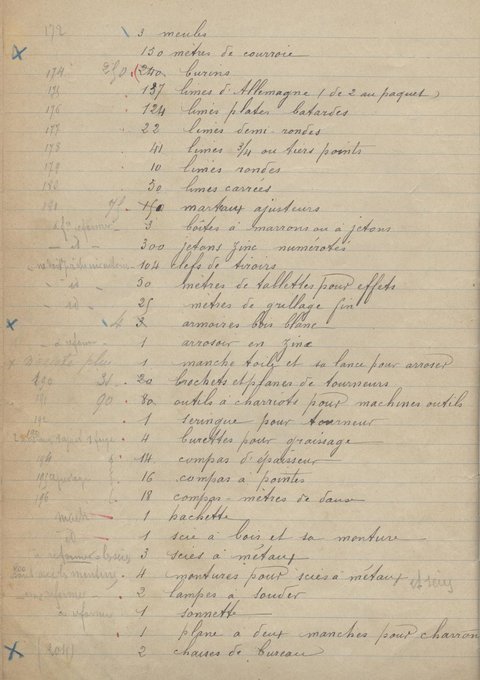 172 3 meules
150 mètres de courroie
174 250 (240 burins
175 137 limes d'Allemagne (de 2 au paquet)
176 124 limes plates batardes
177 22 limes demi-rondes
178 41 limes 3/4 ou tiers points
179 10 limes rondes
180 50 limes carrées
181 marteaux ajusteurs
3 boîtes à marrons ou à jetons
id 300 jetons zinc numérotés
104 clefs de tiroirs
id 50 mètres de tablettes pour effets
id 25 mètres de grillage fin
4 3 armoires bois blanc
à réformer 1 arrosoir en zinc
1 manche toile et sa lance pour arroser
190 31 20 crochets et planes de tourneurs
191 90 80 outils à charriots pour machines outils
192 1 seringue pour tourneur
4 burettes pour graissage
194 14 compas d'épaisseur
16 compas à pointes
196 18 compas-mètres de dans
1 hachette
id 1 scie à bois et sa monture
à réformer 3 scies à métaux
4 montures pour scies à métaux et scies
2 lampes à souder
à réformer 1 sonnette
1 plane à deux manches pour charron
(204) 2 chaises de bureau